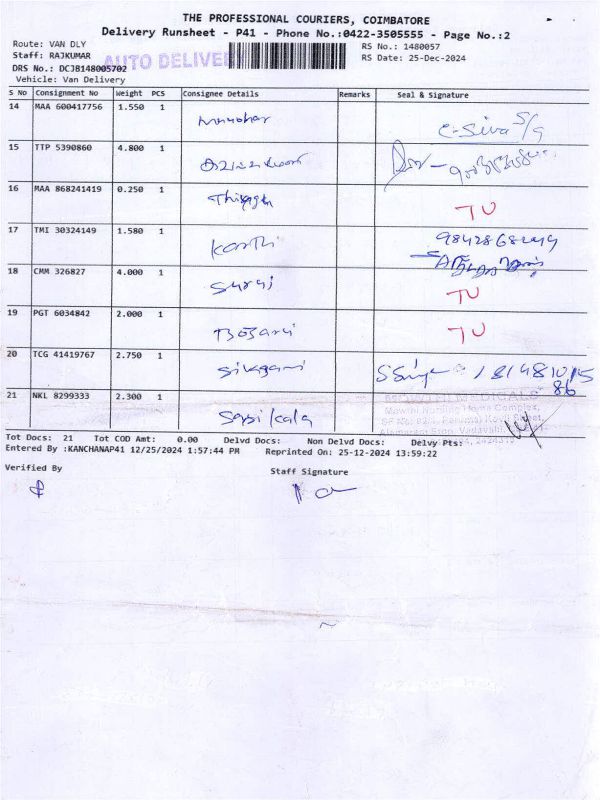 THE PROFESSIONAL COURIERS, COIMBATORE
Delivery Runsheet - P41 - Phone No.:0422-3505555 - Page No.:2
Route: VAN DLY
Staff: RAJKUMAR
DRS No.: DCJB148005702
Vehicle: Van Delivery
AUTO DELIVE
RS No.: 1480057
RS Date: 25-Dec-2024
S No Consignment No Weight PCS Consignee Details Remarks Seal & Signature
14 MAA 600417756 1.550 1 Manohar C-Siva S/g
15 TTP 5390860 4.800 1
16 MAA 868241419 0.250 1 TU
17 TMI 30324149 1.580 1 Karthi
18 CMM 326827 4.000 1 Suraj TU
19 PGT 6034842 2.000 1 TU
20 TCG 41419767 2.750 1 Sivagami
21 NKL 8299333 2.300 1 Sasikala
MOWTHI MEDICALS
Mowthi Nursing Home Complex,
Tot Docs: 21 Tot COD Amt: 0.00 Delvd Docs: Non Delvd Docs: Delvy Pts:
Entered By :KANCHANAP41 12/25/2024 1:57:44 PM Reprinted On: 25-12-2024 13:59:22
Verified By Staff Signature